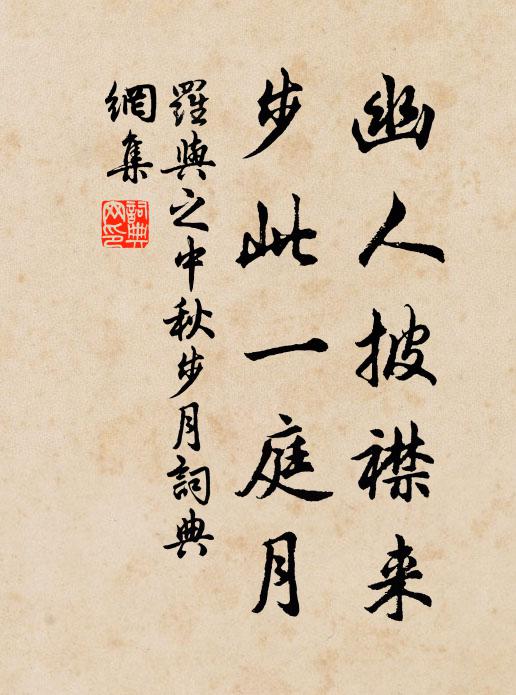 幽人披襟来
步此一庭月
羅與之中秋步月詞典
網集
詞典
网印